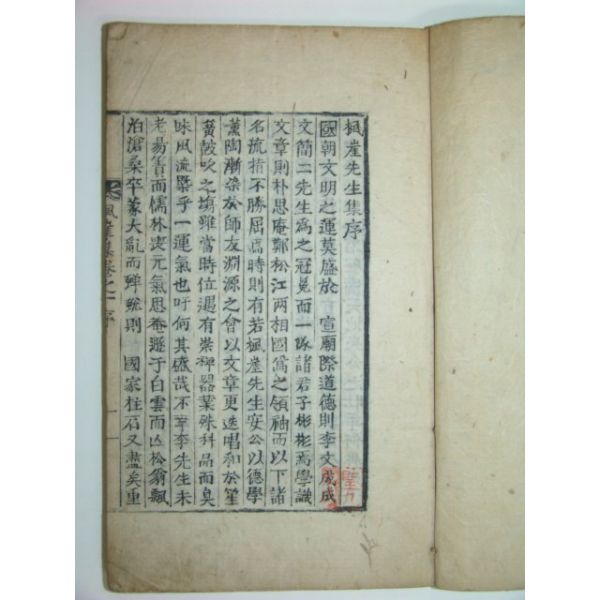 楓崖先生集序
國朝文明之運莫盛於 宣廟際道德則李文成成
文簡二先生爲之冠冕而一隊諸君子彬彬焉學識
文章則朴思庵鄭松江兩相國爲之領袖而以下諸
名流指不勝屈當時則有若楓崖先生安公以德學
薰陶漸染於師友淵源之會以文章更迭唱和於笙
簧皷吹之塲雖當時位遇有崇稗器業殊科品而臭
味風流槩乎一運氣也吁何其盛哉不幸李先生未
老易簀而儒林喪元氣思庵遯于白雲而 松翁飄
泊滄桑卒 大亂而殫 則 國家柱石又盡矣重
楓崖集卷之一 序